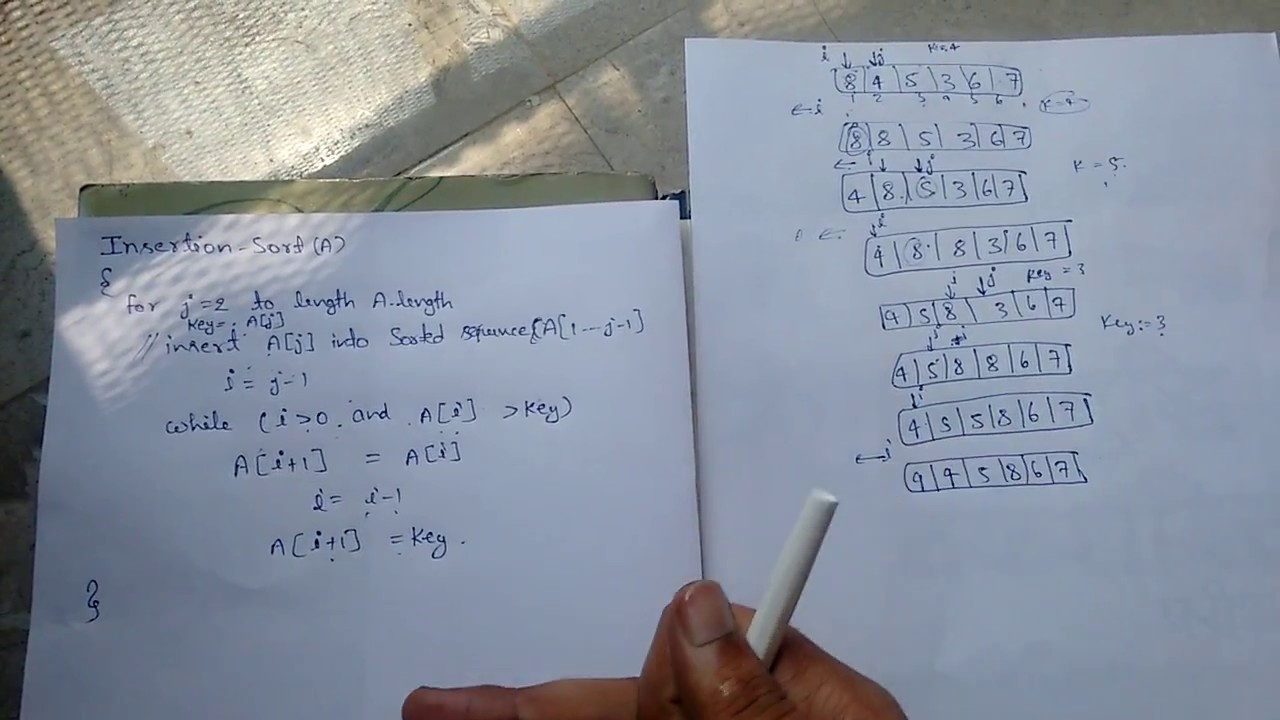 Insertion-Sort(A)
{
for j=2 to length A.length
key= A[j]
// insert A[j] into sorted sequence A[1---j-1]
i = j-1
while (i>0 and A[i] > key)
A[i+1] = A[i]
i = i-1
A[i+1] = key.
}
i j Key 4
8 4 5 3 6 7
1 2 3 4 5 6
← i
8 8 5 3 6 7
← i j K = 5.
4 8 5 3 6 7
0 ← i
4 8 8 3 6 7
i j Key = 3
4 5 8 3 6 7
i Key = 3
4 5 8 8 6 7
i
4 5 5 8 6 7
← i
4 4 5 8 6 7